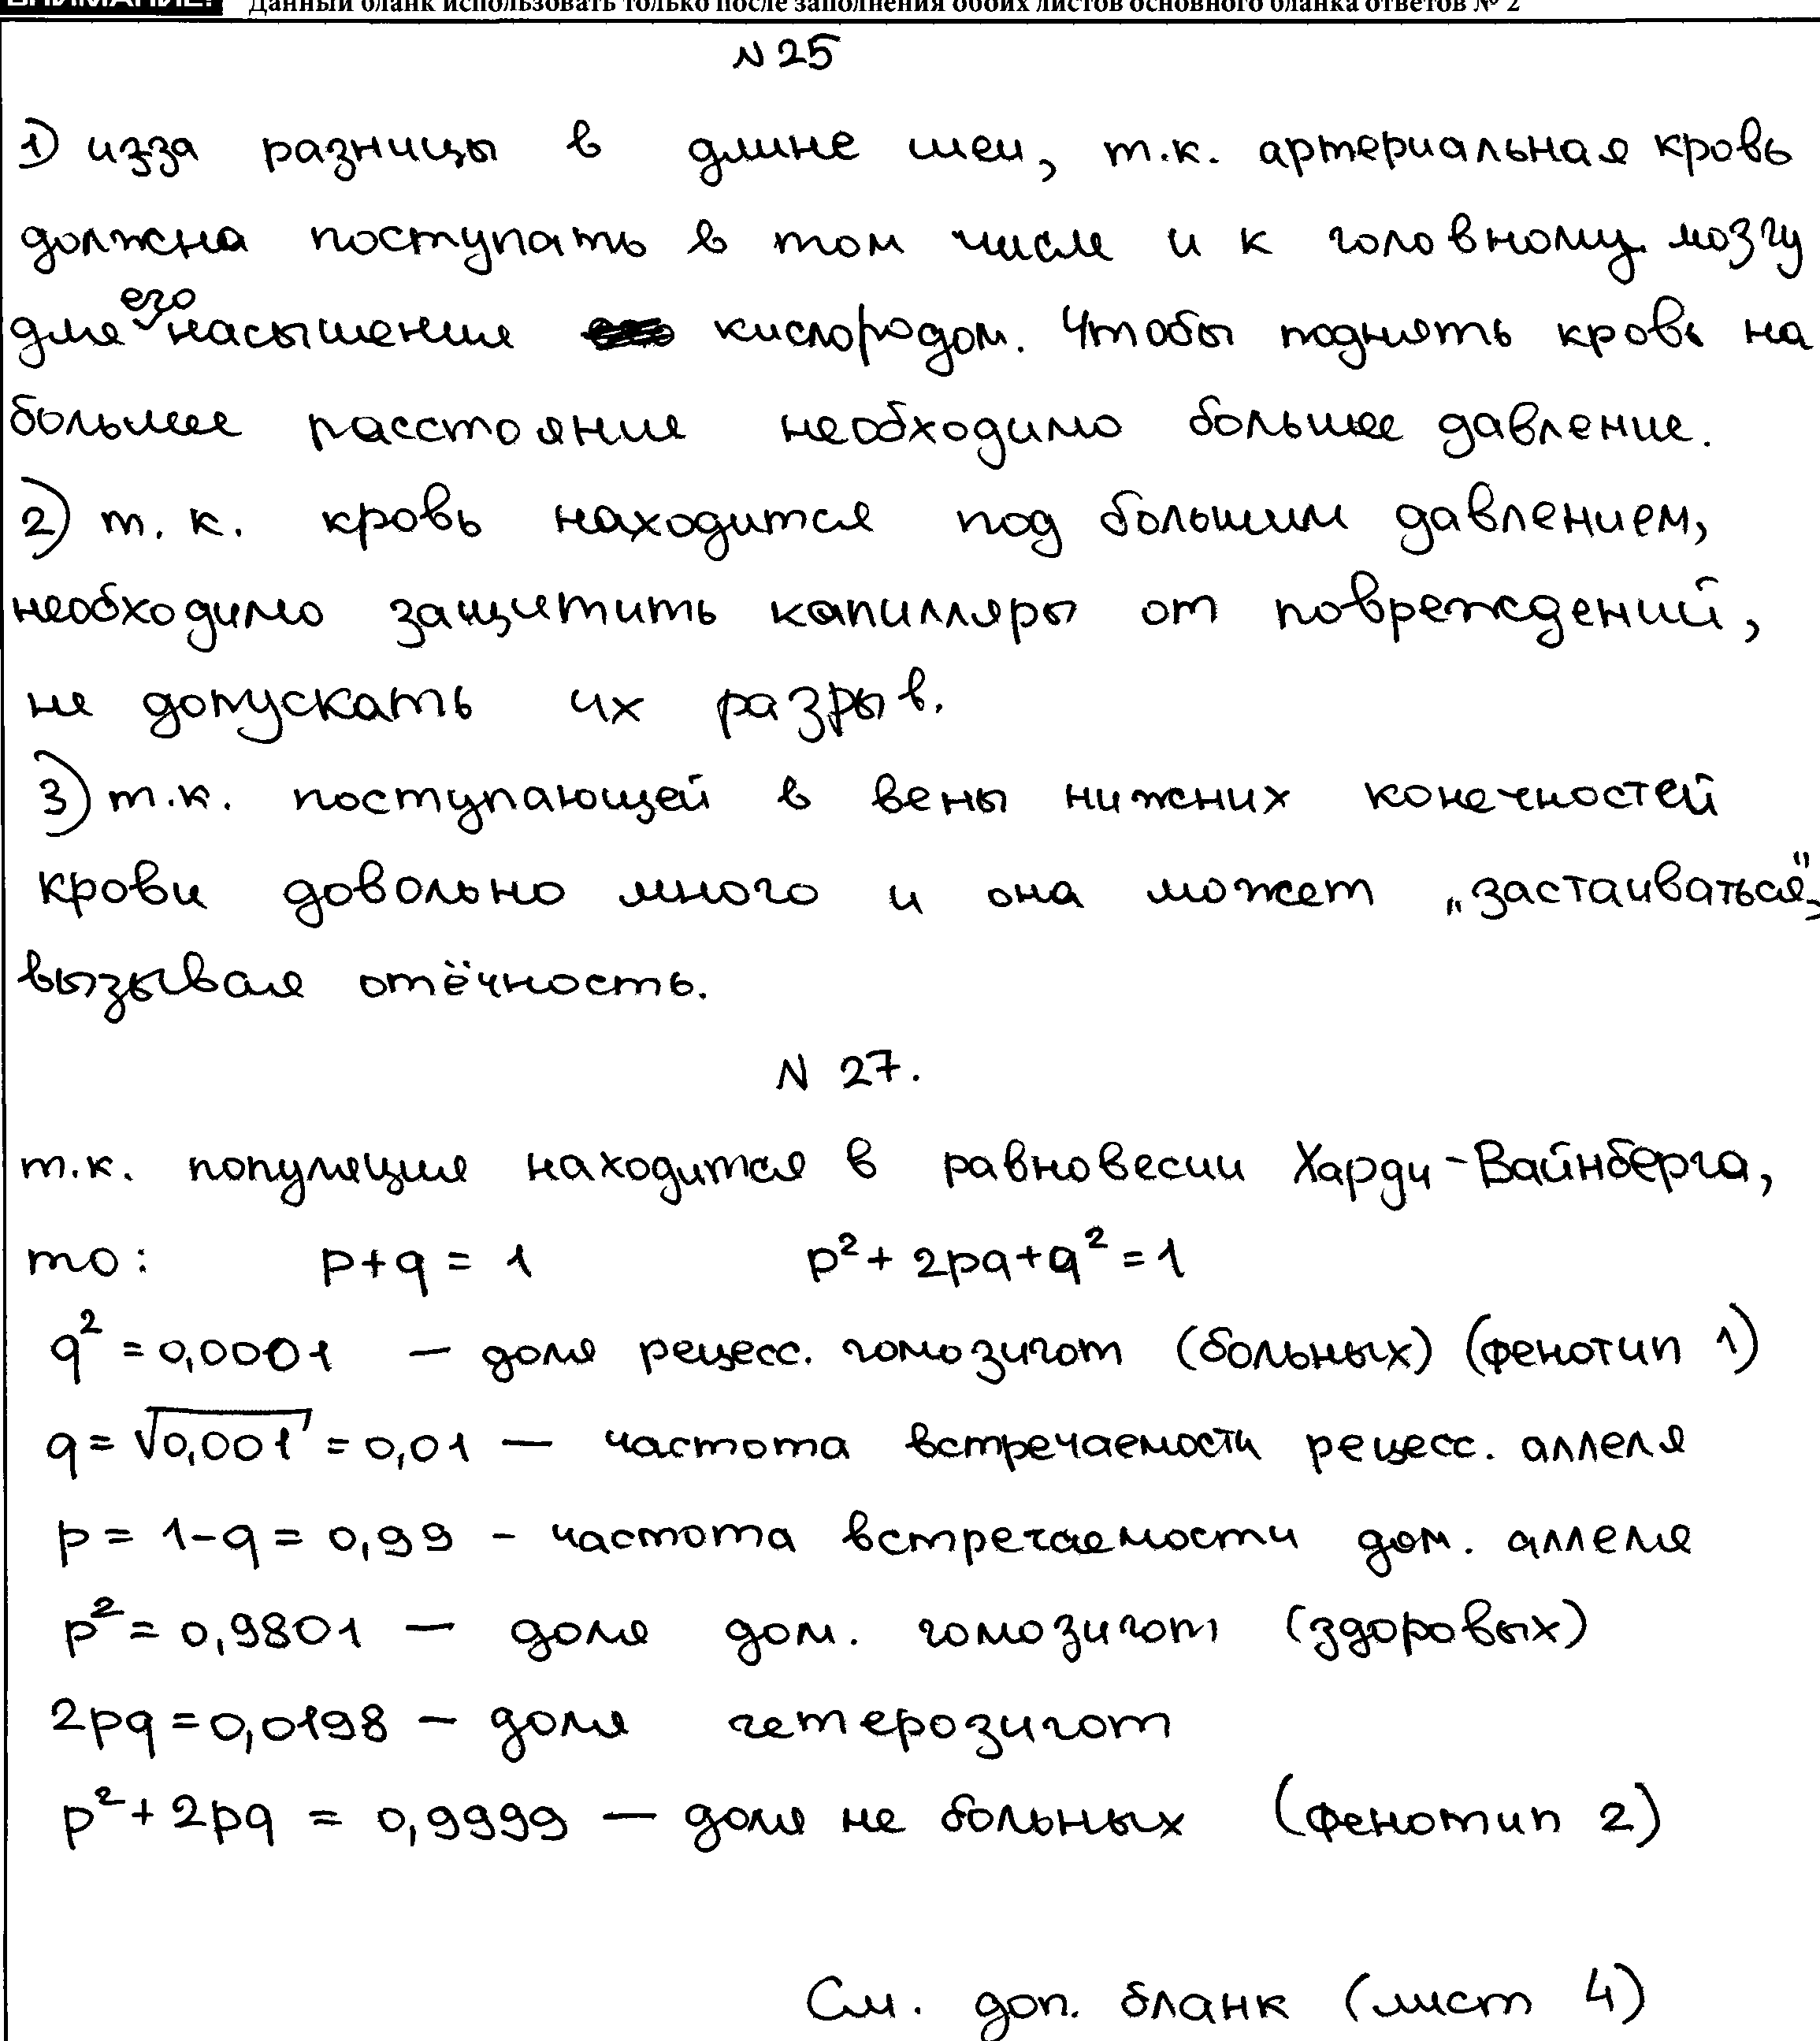 ВНИМАНИЕ! Данный бланк использовать только после заполнения обоих листов основного бланка ответов № 2
N 25
1) изза разницы в длине шеи, т.к. артериальная кровь
должна поступать в том числе и к головному мозгу
для его насыщения кислородом. Чтобы поднять кровь на
большее расстояние необходимо большее давление.
2) т. к. кровь находится под большим давлением,
необходимо защитить капилляры от повреждений,
не допускать их разрыв.
3) т.к. поступающей в вены нижних конечностей
крови довольно много и она может „застаиваться",
вызывая отёчность.
N 27.
т.к. популяция находится в равновесии Харди-Вайнберга,
то: p+q = 1 p² + 2pq+q² = 1
q² = 0,0001 — доля рецесс. гомозигот (больных) (фенотип 1)
q = √0,001 = 0,01 — частота встречаемости рецесс. аллеля
p = 1-q = 0,99 - частота встречаемости дом. аллеля
p² = 0,9801 — доля дом. гомозигот (здоровых)
2pq = 0,0198 — доля гетерозигот
p² + 2pq = 0,9999 — доля не больных (фенотип 2)
См. доп. бланк (лист 4)